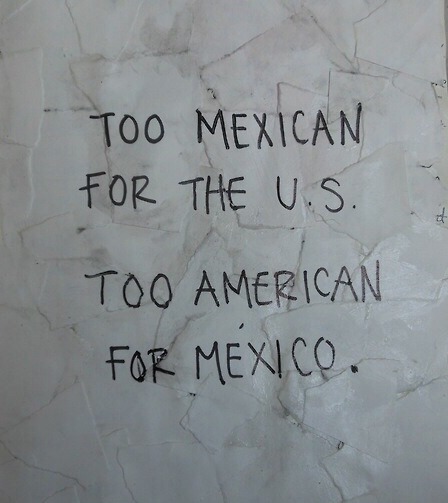 TOO MEXICAN
FOR THE U.S.
TOO AMERICAN
FOR MÉXICO.